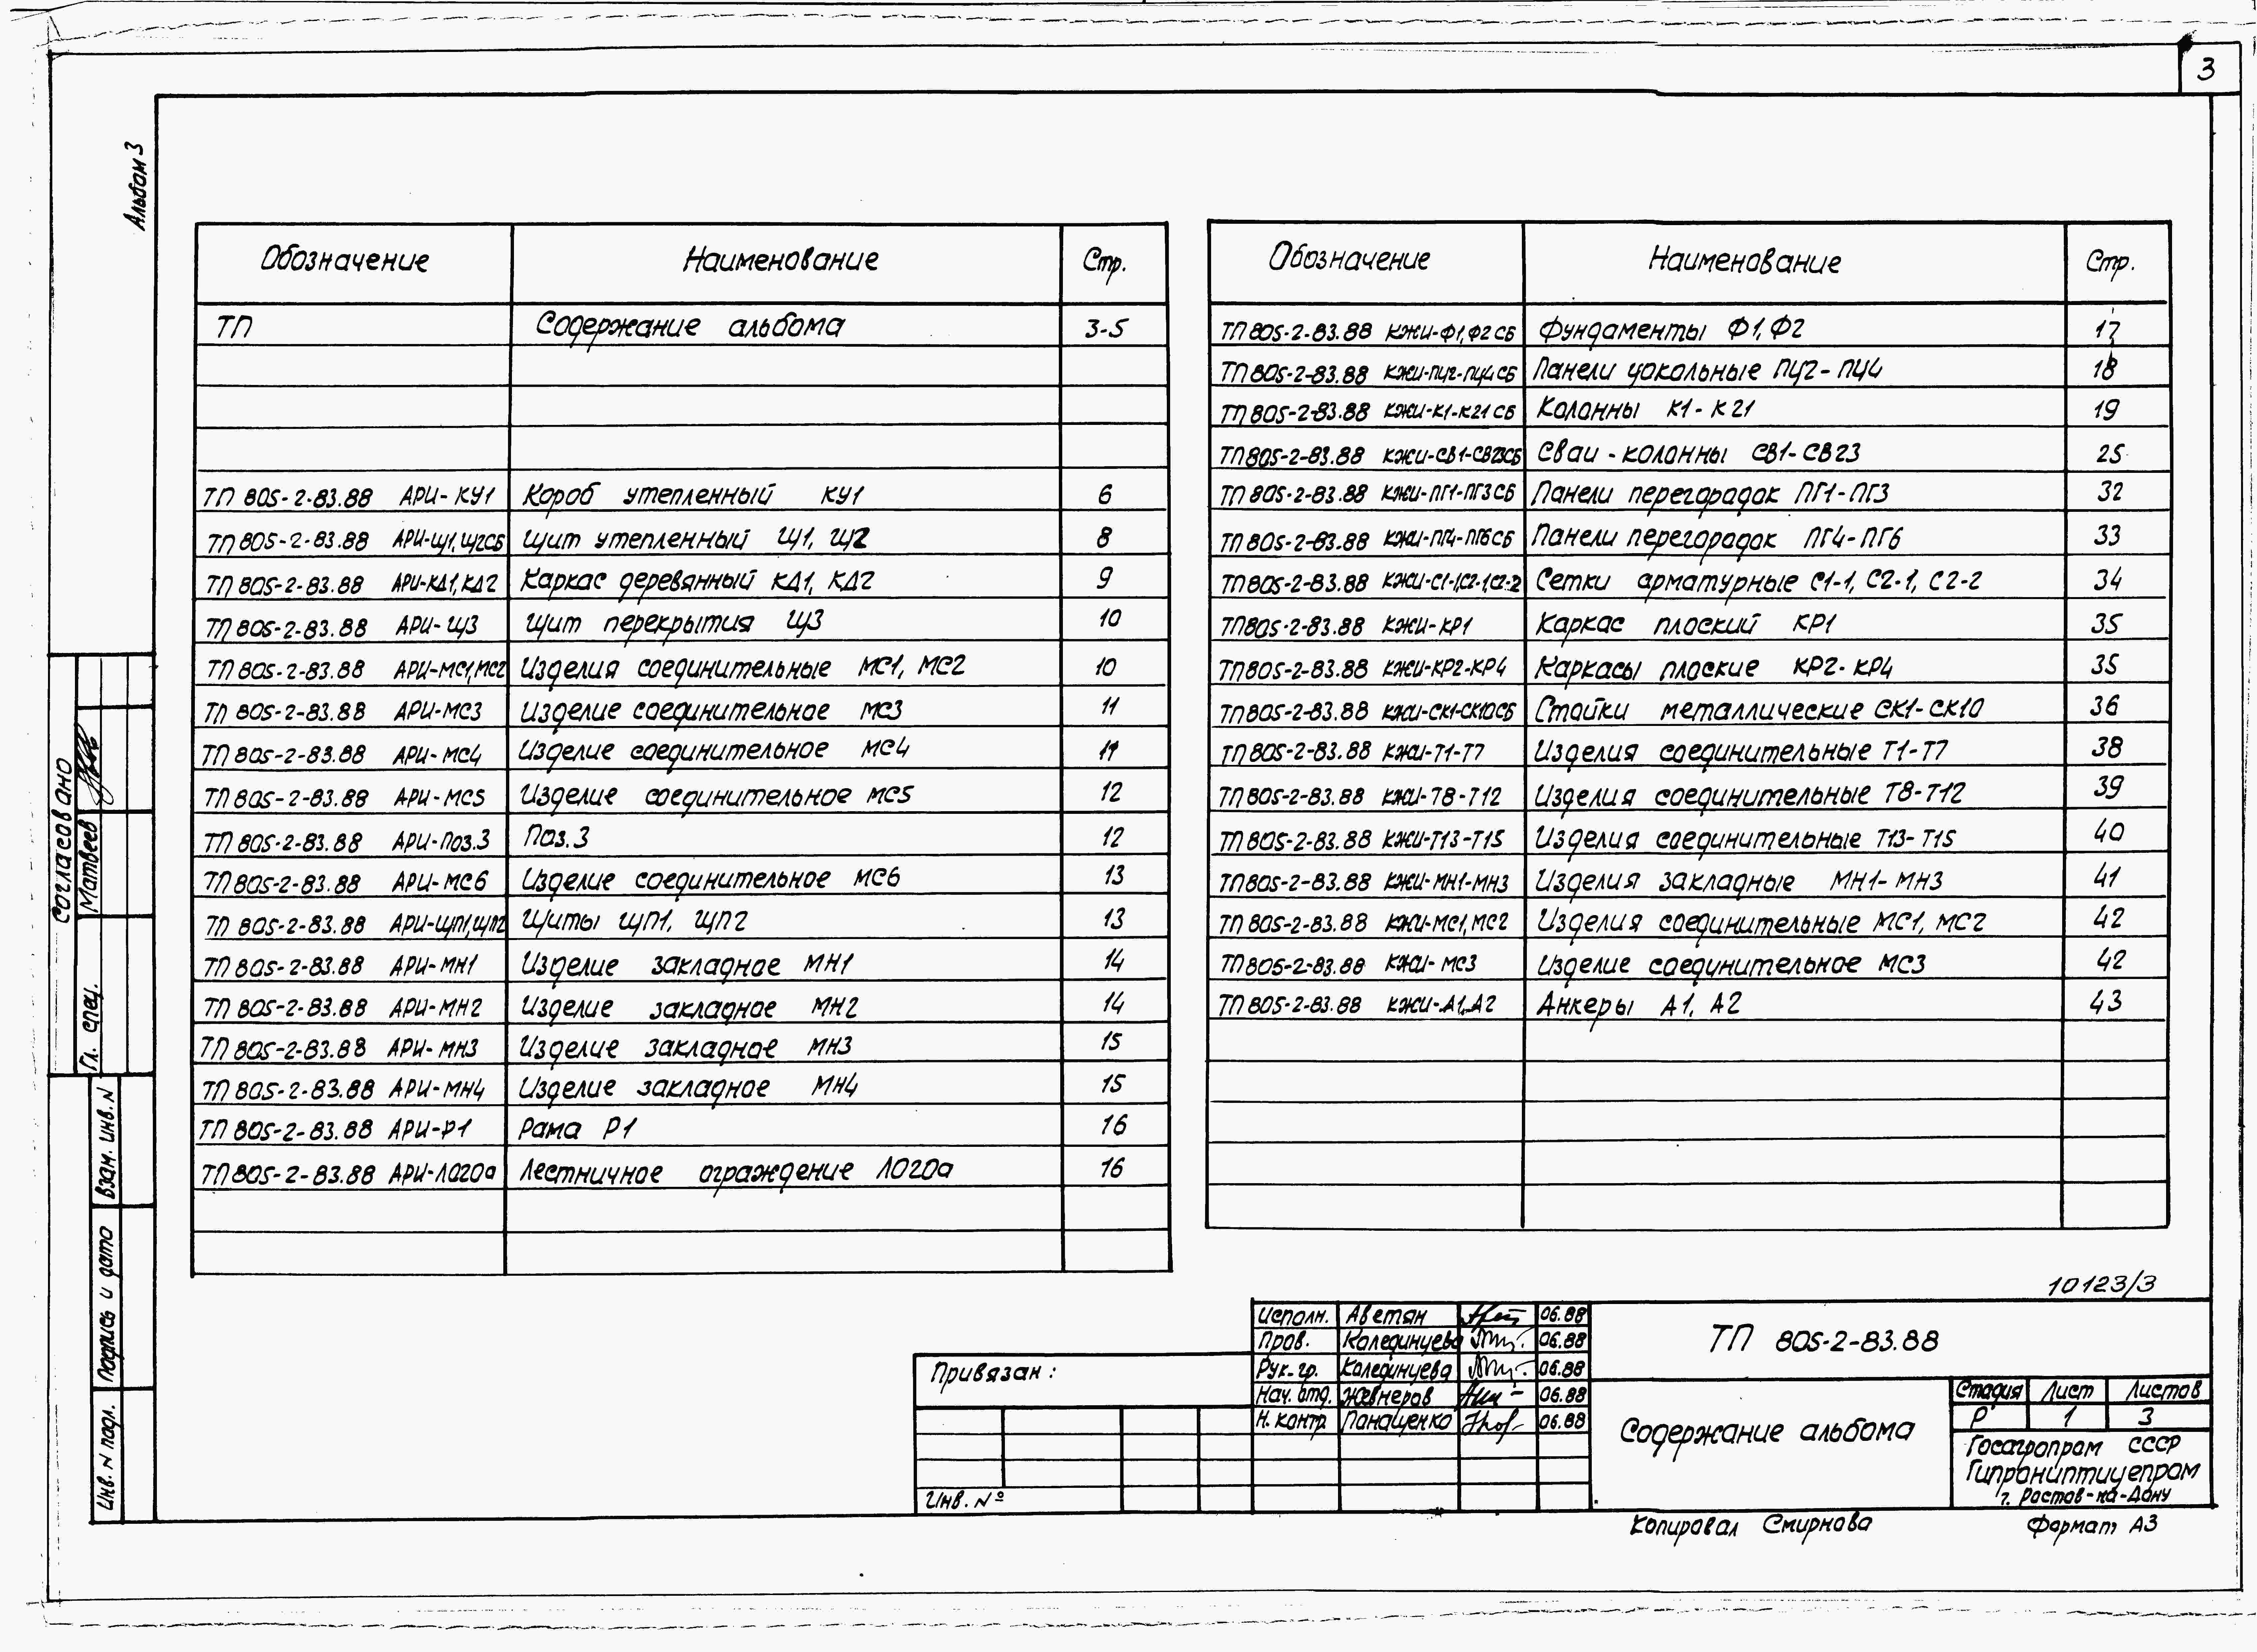 3
Альбом 3
Обозначение Наименование Стр.
ТП Содержание альбома 3-5
ТП 805-2-83.88 АРИ-КУ1 Короб утепленный КУ1 6
ТП 805-2-83.88 АРИ-Щ1, Щ2СБ Щит утепленный Щ1, Щ2 8
ТП 805-2-83.88 АРИ-КД1, КД2 Каркас деревянный КД1, КД2 9
ТП 805-2-83.88 АРИ-Щ3 Щит перекрытия Щ3 10
ТП 805-2-83.88 АРИ-МС1, МС2 Изделия соединительные МС1, МС2 10
ТП 805-2-83.88 АРИ-МС3 Изделие соединительное МС3 11
ТП 805-2-83.88 АРИ-МС4 Изделие соединительное МС4 11
ТП 805-2-83.88 АРИ-МС5 Изделие соединительное МС5 12
ТП 805-2-83.88 АРИ-Поз.3 Поз.3 12
ТП 805-2-83.88 АРИ-МС6 Изделие соединительное МС6 13
ТП 805-2-83.88 АРИ-ЩП1, ЩП2 Щиты ЩП1, ЩП2 13
ТП 805-2-83.88 АРИ-МН1 Изделие закладное МН1 14
ТП 805-2-83.88 АРИ-МН2 Изделие закладное МН2 14
ТП 805-2-83.88 АРИ-МН3 Изделие закладное МН3 15
ТП 805-2-83.88 АРИ-МН4 Изделие закладное МН4 15
ТП 805-2-83.88 АРИ-Р1 Рама Р1 16
ТП 805-2-83.88 АРИ-ЛО20а Лестничное ограждение ЛО20а 16
Обозначение Наименование Стр.
ТП 805-2-83.88 КЖИ-Ф1, Ф2 СБ Фундаменты Ф1, Ф2 17
ТП 805-2-83.88 КЖИ-ПЦ2-ПЦ4 СБ Панели цокольные ПЦ2-ПЦ4 18
ТП 805-2-83.88 КЖИ-К1-К21 СБ Колонны К1-К21 19
ТП 805-2-83.88 КЖИ-СВ1-СВ23СБ Сваи-колонны СВ1-СВ23 25
ТП 805-2-83.88 КЖИ-ПГ1-ПГ3 СБ Панели перегородок ПГ1-ПГ3 32
ТП 805-2-83.88 КЖИ-ПГ4-ПГ6 СБ Панели перегородок ПГ4-ПГ6 33
ТП 805-2-83.88 КЖИ-С1-1, С2-1, С2-2 Сетки арматурные С1-1, С2-1, С2-2 34
ТП 805-2-83.88 КЖИ-КР1 Каркас плоский КР1 35
ТП 805-2-83.88 КЖИ-КР2-КР4 Каркасы плоские КР2-КР4 35
ТП 805-2-83.88 КЖИ-СК1-СК10СБ Стойки металлические СК1-СК10 36
ТП 805-2-83.88 КЖИ-Т1-Т7 Изделия соединительные Т1-Т7 38
ТП 805-2-83.88 КЖИ-Т8-Т12 Изделия соединительные Т8-Т12 39
ТП 805-2-83.88 КЖИ-Т13-Т15 Изделия соединительные Т13-Т15 40
ТП 805-2-83.88 КЖИ-МН1-МН3 Изделия закладные МН1-МН3 41
ТП 805-2-83.88 КЖИ-МС1, МС2 Изделия соединительные МС1, МС2 42
ТП 805-2-83.88 КЖИ-МС3 Изделие соединительное МС3 42
ТП 805-2-83.88 КЖИ-А1, А2 Анкеры А1, А2 43
Согласовано
Гл. спец. Матвеев
Взам. инв. N
Подпись и дата
Инв. N подл.
10123/3
Привязан:
Инв. №
Исполн. Аветян 06.88
Пров. Колединцева 06.88
Рук. гр. Колединцева 06.88
Нач. отд. Жевнеров 06.88
Н. контр. Панащенко 06.88
ТП 805-2-83.88
Содержание альбома
Стадия Лист Листов
Р 1 3
Госагропром СССР
Гипрониптицепром
г. Ростов-на-Дону
Копировал Смирнова Формат А3